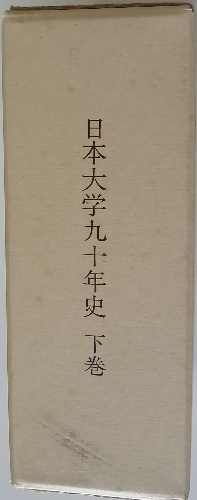 日本大学九十年史 下巻